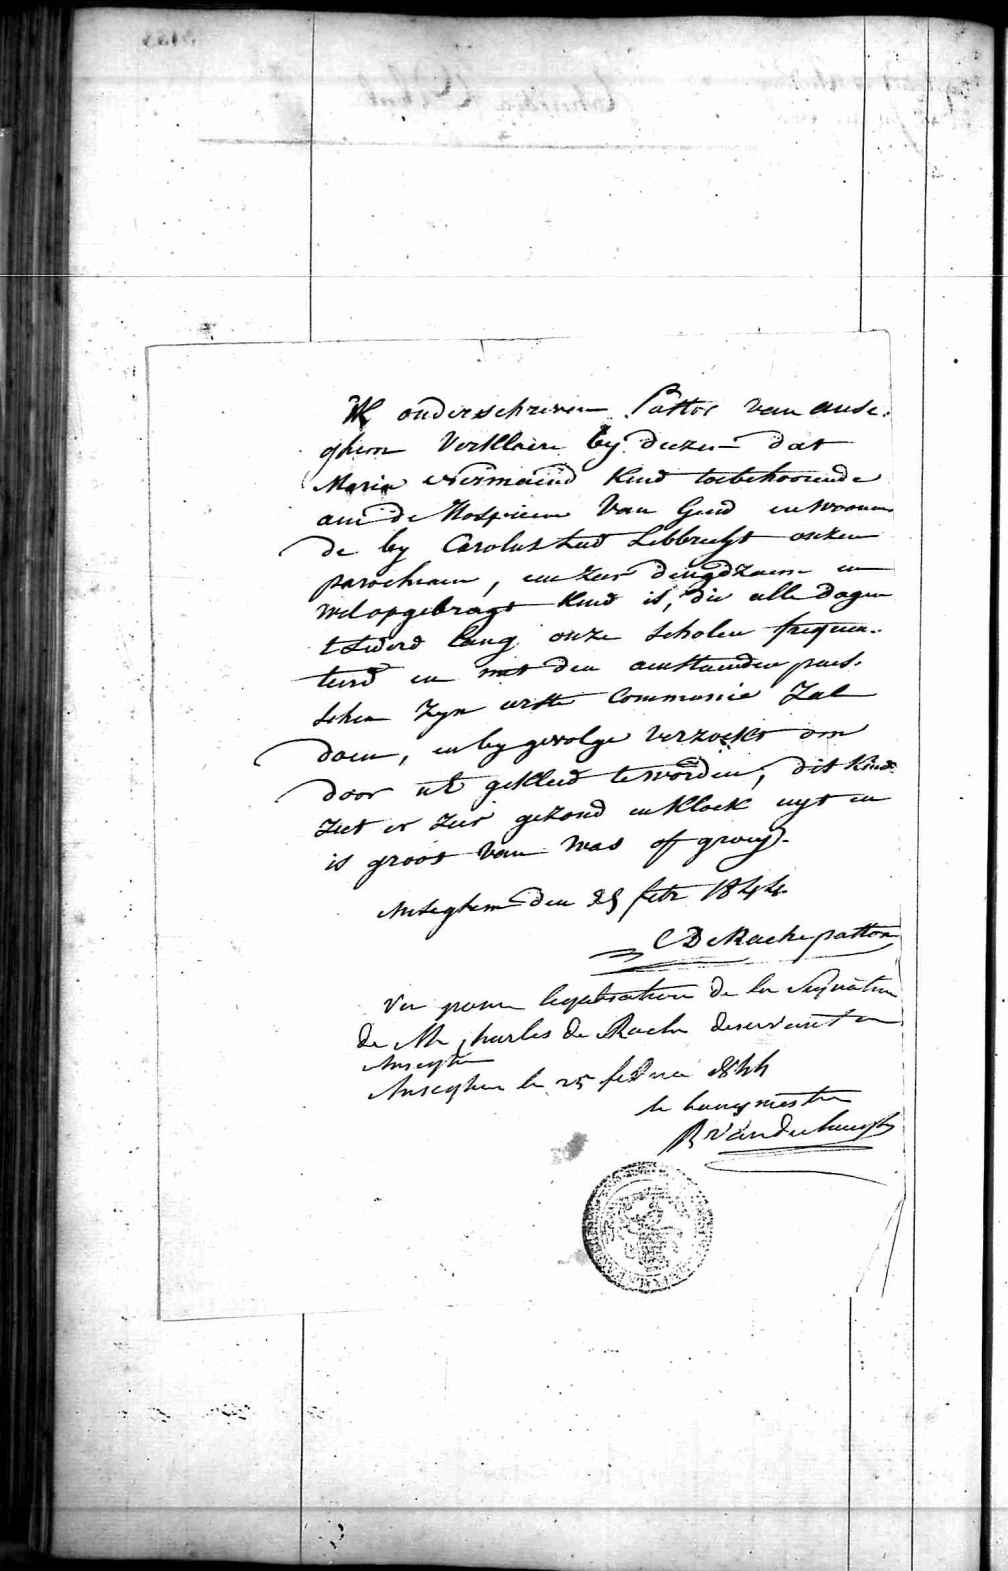 Ik onderschreven Pastor van anse-
ghem Verklaere by dezen dat
Maria kind toebehoorende
aen de Hospicien van Gend en woonen
de by Carolus Lud Libbrecht onzen
parochiaen, een zeer deugdzaem en
wel opgebragt kind is, die alle dagen
lang onze scholen frequen-
teerd en met den aenstaenden paes-
schen zyn erste Communie zal
doen, en by gevolge verzoekt om
door ul gekleed te worden, dit kind
ziet er zeer gezond en kloek uyt en
is groot van was of groey).
Anseghem den 25 febr 1844.
C De Racke pastor
Vu pour legalisation de la signature
de Mr Charles de Racke desservant a
Anseghem
Anseghem le 25 fevrier 1844
le bourgmestre